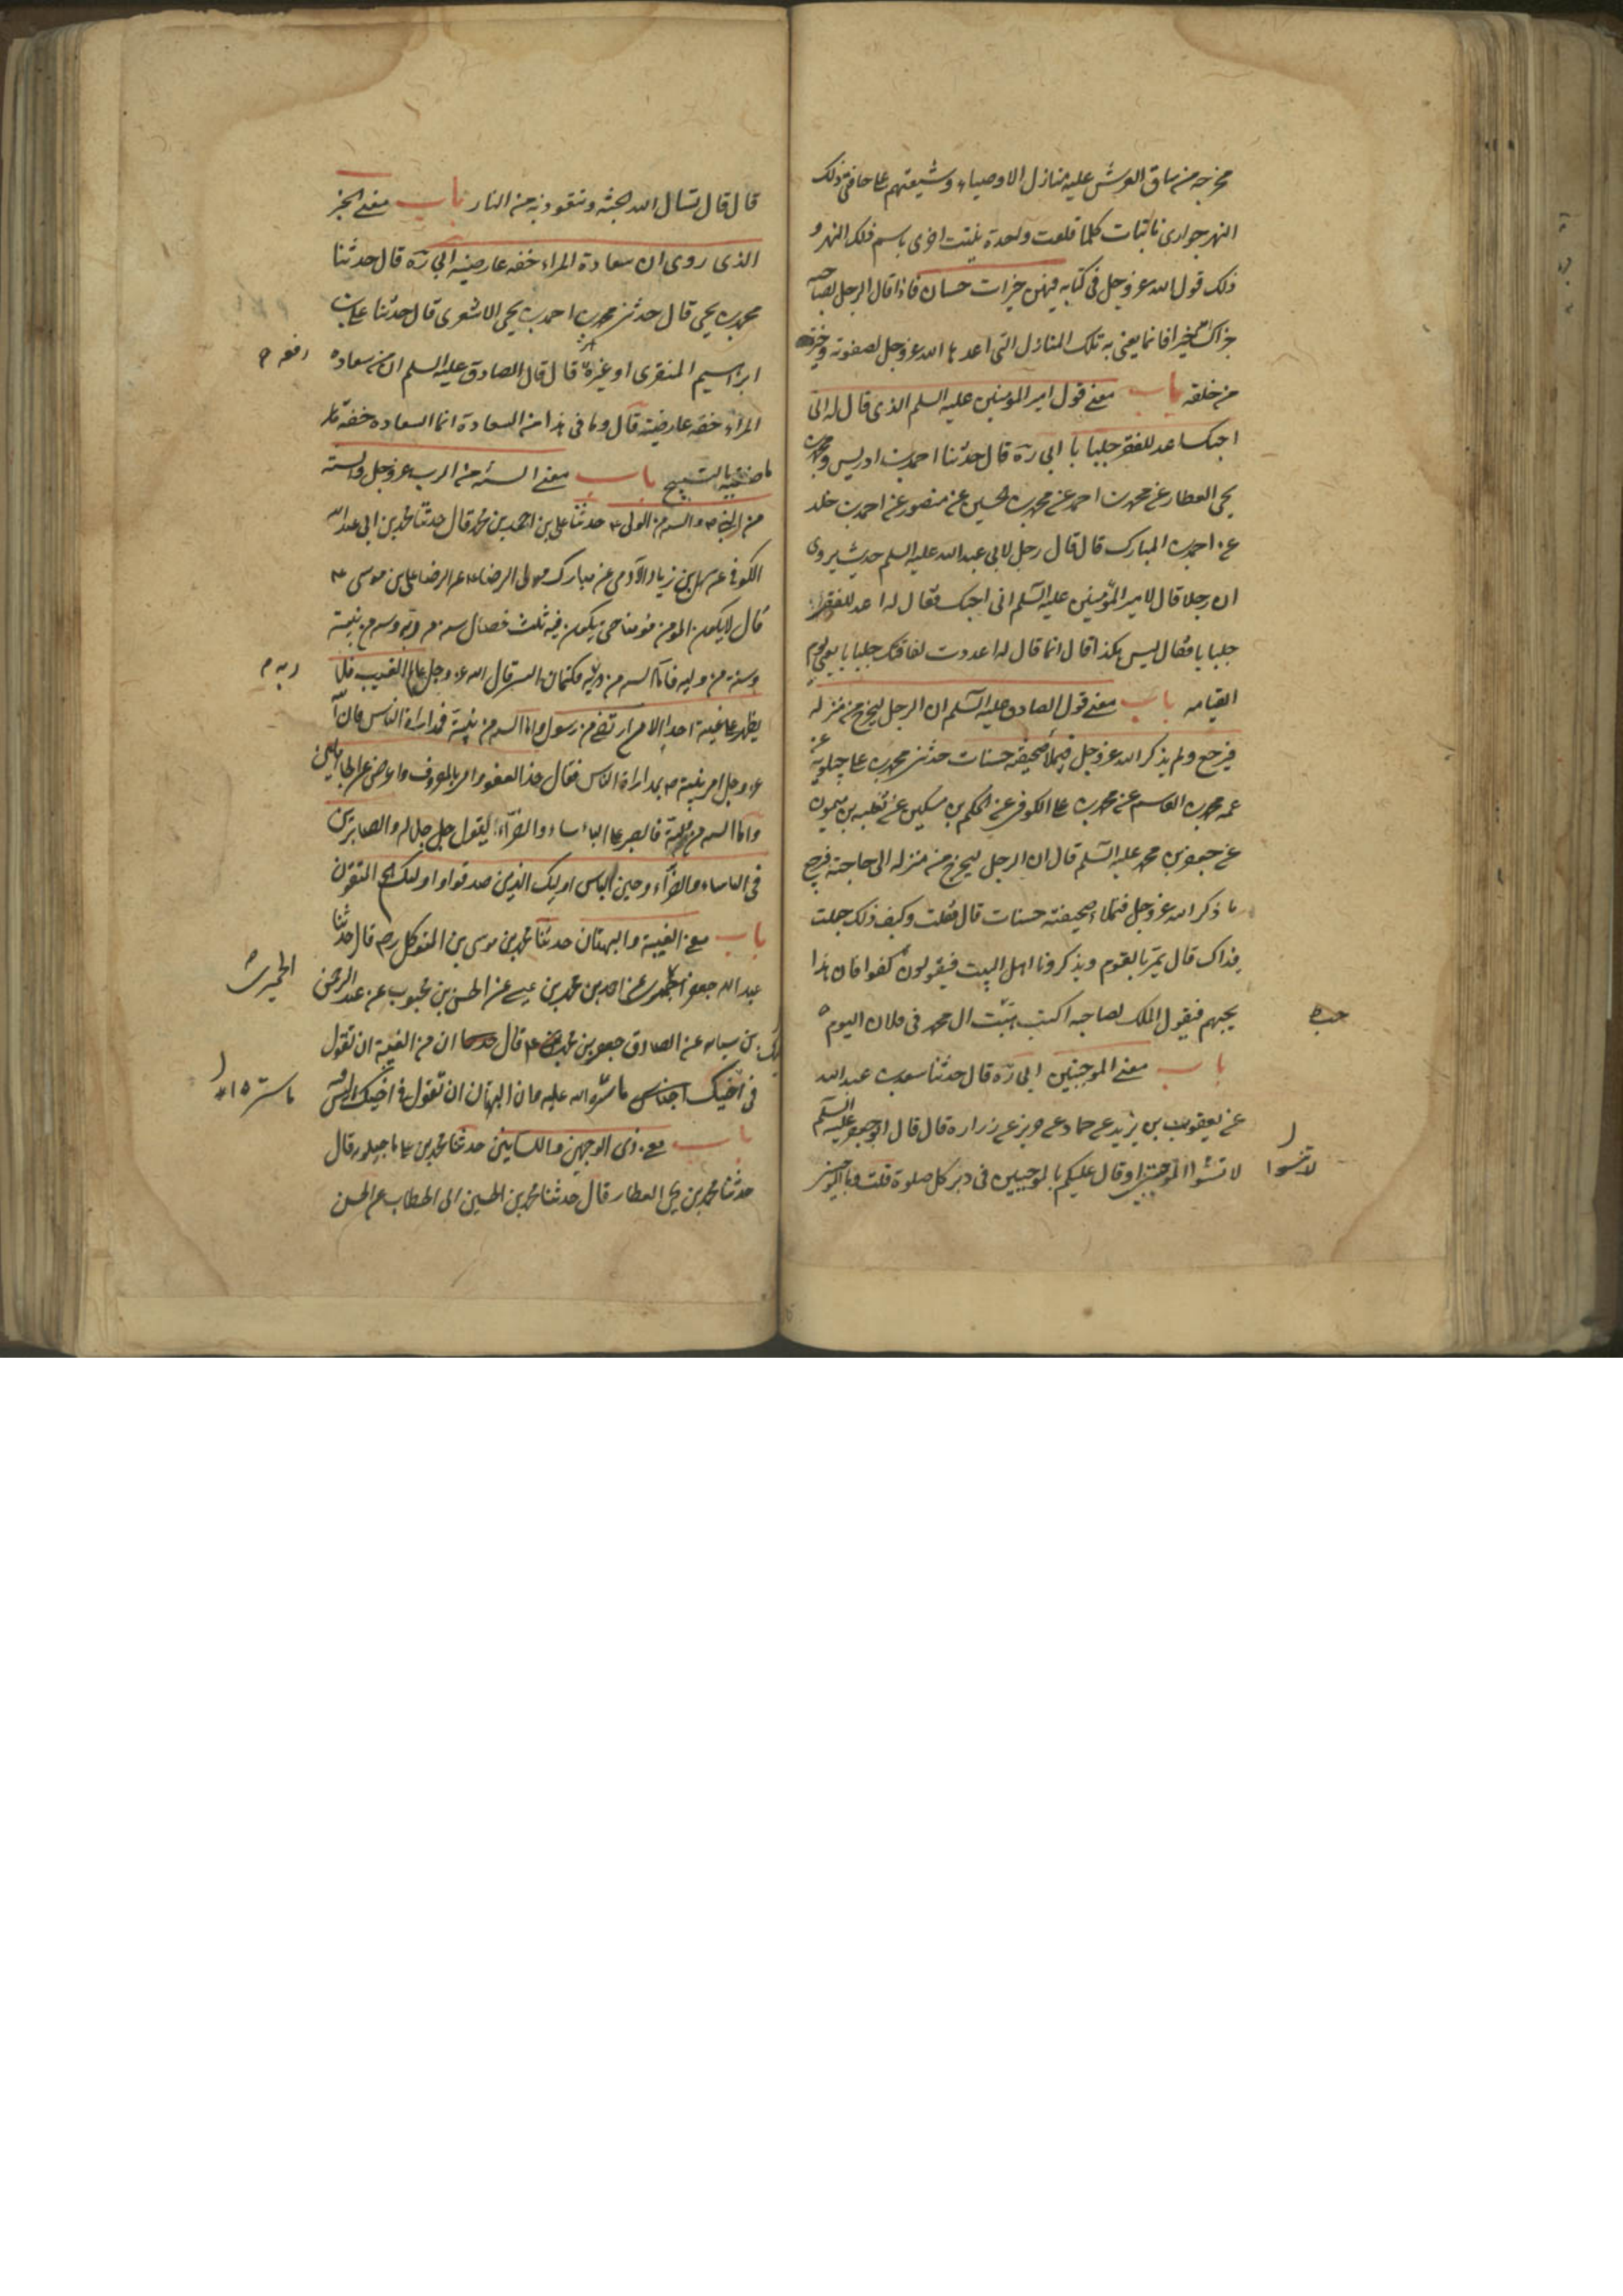 مخرجه من ساق العرش عليه منازل الاوصياء وشيعتهم على حافتى ذلك
النهر جوارى نابتات كلما قلعت واحدة نبتت اخرى باسم ذلك النهر و
ذلك قول الله عز وجل فى كتابه فيهن خيرات حسان فاذا قال الرجل لصاحبه
جزاك الله خيرا فانما يعنى به تلك المنازل التى اعدها الله عز وجل لصفوته وخيرته
من خلقه باب معنى قول امير المؤمنين عليه السلم الذى قال له انى
احبك اعد للفقر جلبابا ابى ره قال حدثنا احمد بن ادريس ومحمد بن
يحيى العطار عن محمد بن احمد عن محمد بن الحسين عن منصور عن احمد بن خلد
عن احمد بن المبارك قال قال رجل لابى عبد الله عليه السلم حديث يروى
ان رجلا قال لامير المؤمنين عليه السلم انى احبك فقال له اعد للفقر
جلبابا فقال ليس هكذا قال انما قال له اعددت لفاقتك جلبابا يعنى يوم
القيامه باب معنى قول الصادق عليه السلم ان الرجل ليخرج من منزله
فيرجع ولم يذكر الله عز وجل فيملأ صحيفته حسنات حدثنى محمد بن على ماجيلويه عن
عمه محمد بن القاسم عن محمد بن على الكوفى عن الحكم بن مسكين عن ثعلبه بن ميمون
عن جعفر بن محمد عليه السلم قال ان الرجل ليخرج من منزله الى حاجته فيرجع
ما ذكر الله عز وجل فتملاء صحيفته حسنات قال فقلت وكيف ذلك جعلت
فداك قال يمر بالقوم ويذكرونا اهل البيت فيقولون كفوا فان هذا
يحبهم فيقول الملك لصاحبه اكتب هيبت ال محمد فى فلان اليوم
باب معنى الموجبتين ابى ره قال حدثنا سعد بن عبد الله
عن يعقوب بن يزيد عن حماد عن حريز عن زرارة قال قال ابو جعفر عليه السلم
لا تنسوا الموجبتين او قال عليكم بالموجبتين فى دبر كل صلوة قلت وما الموجبتين
لا تنسوا
قال قال تسال الله الجنة وتتعوذ به من النار باب معنى الخبر
الذى روى ان سعادة المراء خفه عارضيه ابى ره قال حدثنا
محمد بن يحيى قال حدثنى محمد بن احمد بن يحيى الاشعرى قال حدثنا على بن
ابراهيم المنقرى او غيره قال قال الصادق عليه السلم ان من سعاده
رفعه
المراء خفه عارضيه قال وما فى هذا من السعادة انما السعاده خفه
ماضغيه بالتسبيح باب معنى السنه من الرب عز وجل والسنه
من النبى ص والسنه من الولى ع حدثنا على بن احمد بن محمد قال حدثنا محمد بن ابى عبد الله
الكوفى عن سهل بن زياد الآدمى عن مبارك مولى الرضا ع عن الرضا على بن موسى ع
قال لا يكون المومن مومنا حتى يكون فيه ثلث خصال سنه من ربه وسنه من نبيه
ربه
وسنة من وليه فاما السنه من ربه فكتمان السر قال الله عز وجل عالم الغيب فلا
يظهر على غيبه احدا الا من ارتضى من رسول واما السنه من نبيه فمداراة الناس فان الله
عز وجل امر نبيه ص بمداراة الناس فقال خذ العفو وامر بالعرف واعرض عن الجاهلين
واما السنه من وليه فالصبر على الباساء والضراء يقول جل جلاله والصابرين
فى الباساء والضراء وحين الباس اولئك الذين صدقوا واولئك هم المتقون
باب معنى الغيبة والبهتان حدثنا محمد بن موسى بن المتوكل ره قال حدثنا
عبد الله جعفر الحميرى عن احمد بن محمد بن عيسى عن الحسن بن محبوب عن عبد الرحمن
الحميرى
بن سيابه عن الصادق جعفر بن محمد ع قال ان من الغيبة ان تقول
فى اخيك ما ستره الله عليه وان البهتان ان تقول فى اخيك ما ليس
ما ستره
باب معنى ذى الوجهين واللسانين حدثنا محمد بن على ماجيلويه قال
حدثنا محمد بن يحيى العطار قال حدثنا محمد بن الحسين ابى الخطاب عن الحسن